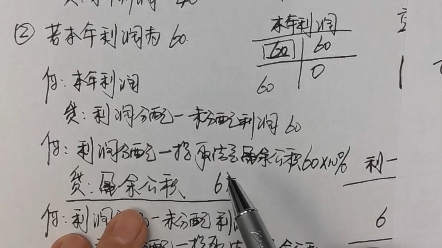 ② 若本年利润为 60.
本年利润
60 60
60 0
借: 本年利润
贷: 利润分配—未分配利润 60
借: 利润分配—提取法定盈余公积 60×10% 利—
贷: 盈余公积 6
借: 利润分配—未分配利
6